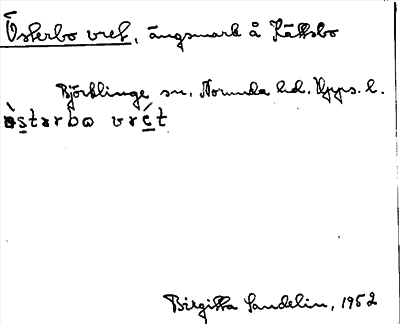 Österbo vret, ängsmark å Kättsbo
Björklinge sn. Norunda hd. Upps. l.
ö̀stərbω vrét
Birgitta Sandelin, 1952